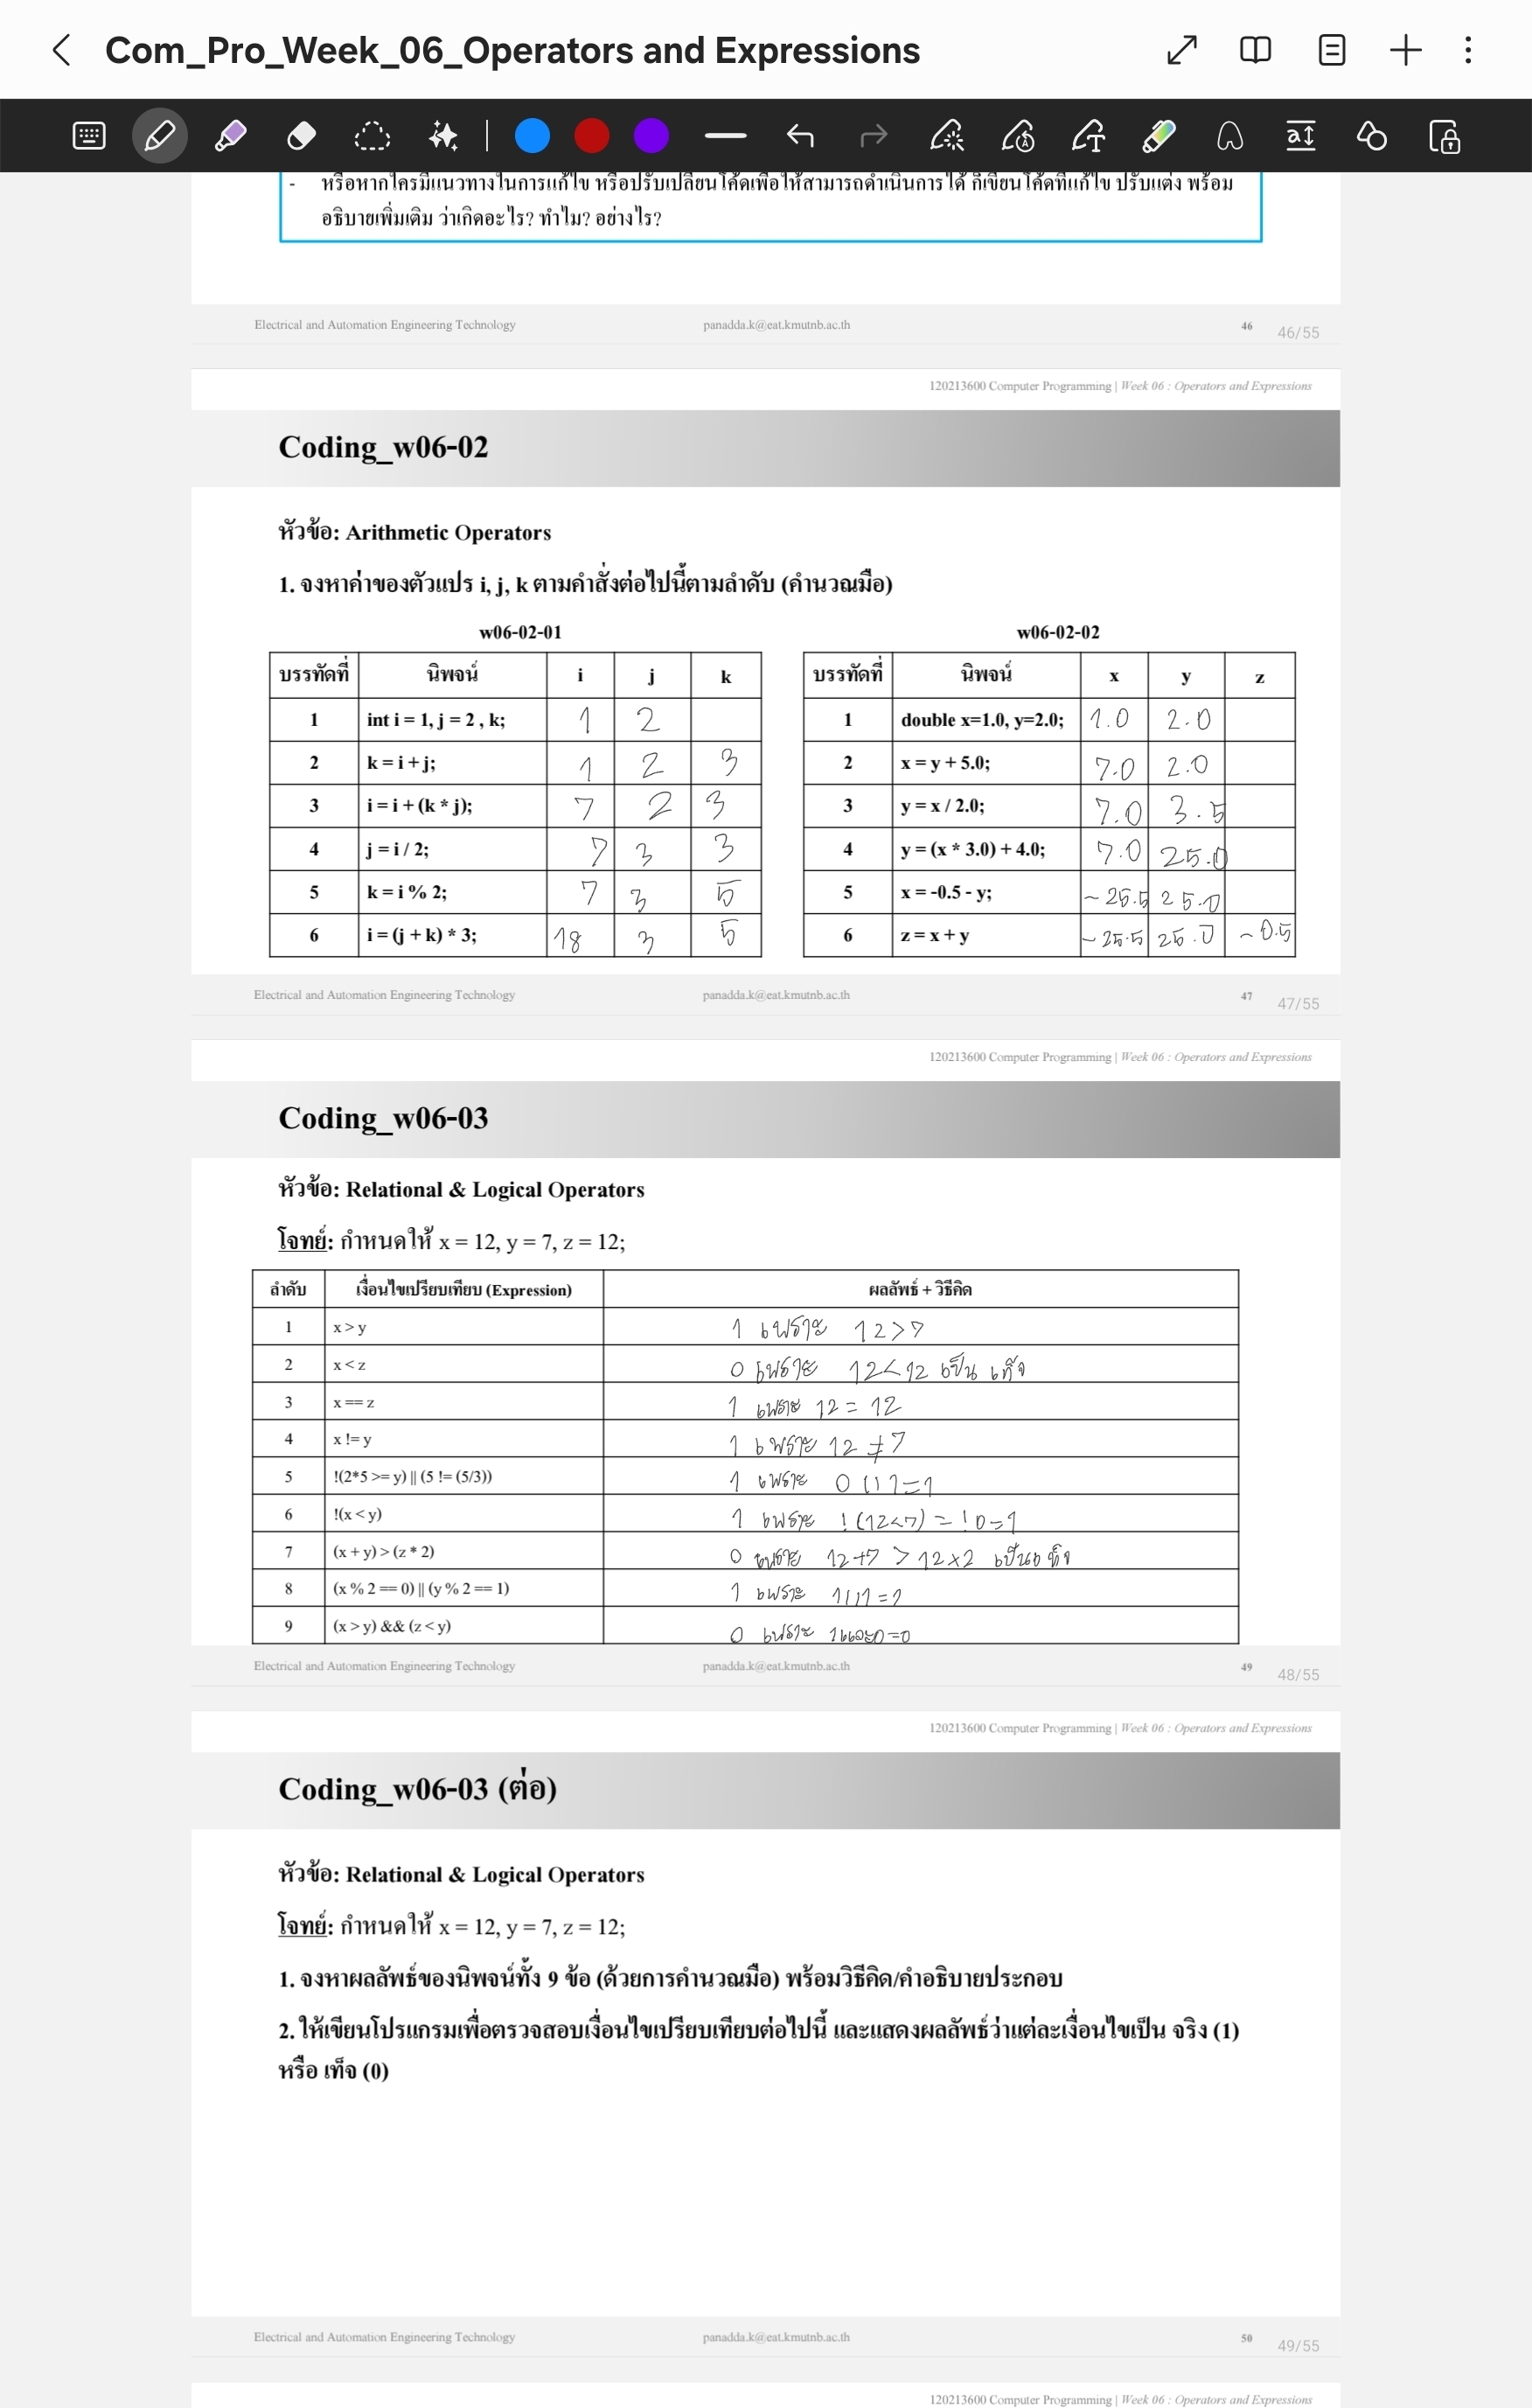 Com_Pro_Week_06_Operators and Expressions
- หรือหากใครมีแนวทางในการแก้ไข หรือปรับเปลี่ยนโค้ดเพื่อให้สามารถดำเนินการได้ ก็เขียนโค้ดที่แก้ไข ปรับแต่ง พร้อม
อธิบายเพิ่มเติม ว่าเกิดอะไร? ทำไม? อย่างไร?
Electrical and Automation Engineering Technology panadda.k@eat.kmutnb.ac.th 46 46/55
120213600 Computer Programming | Week 06 : Operators and Expressions
Coding_w06-02
หัวข้อ: Arithmetic Operators
1. จงหาค่าของตัวแปร i, j, k ตามคำสั่งต่อไปนี้ตามลำดับ (คำนวณมือ)
w06-02-01
บรรทัดที่ นิพจน์ i j k
1 int i = 1, j = 2 , k; 1 2
2 k = i + j; 1 2 3
3 i = i + (k * j); 7 2 3
4 j = i / 2; 7 3 3
5 k = i % 2; 7 3 5
6 i = (j + k) * 3; 18 3 5
w06-02-02
บรรทัดที่ นิพจน์ x y z
1 double x=1.0, y=2.0; 1.0 2.0
2 x = y + 5.0; 7.0 2.0
3 y = x / 2.0; 7.0 3.5
4 y = (x * 3.0) + 4.0; 7.0 25.0
5 x = -0.5 - y; -25.5 25.0
6 z = x + y -25.5 25.0 -0.5
Electrical and Automation Engineering Technology panadda.k@eat.kmutnb.ac.th 47 47/55
120213600 Computer Programming | Week 06 : Operators and Expressions
Coding_w06-03
หัวข้อ: Relational & Logical Operators
โจทย์: กำหนดให้ x = 12, y = 7, z = 12;
ลำดับ เงื่อนไขเปรียบเทียบ (Expression) ผลลัพธ์ + วิธีคิด
1 x > y 1 เพราะ 12>7
2 x < z 0 เพราะ 12<12 เป็น เท็จ
3 x == z 1 เพราะ 12 = 12
4 x != y 1 เพราะ 12 ≠ 7
5 !(2*5 >= y) || (5 != (5/3)) 1 เพราะ 0 || 1 = 1
6 !(x < y) 1 เพราะ !(12<7) = !0=1
7 (x + y) > (z * 2) 0 เพราะ 12+7 > 12×2 เป็นเท็จ
8 (x % 2 == 0) || (y % 2 == 1) 1 เพราะ 1||1 = 1
9 (x > y) && (z < y) 0 เพราะ 1และ0=0
Electrical and Automation Engineering Technology panadda.k@eat.kmutnb.ac.th 49 48/55
120213600 Computer Programming | Week 06 : Operators and Expressions
Coding_w06-03 (ต่อ)
หัวข้อ: Relational & Logical Operators
โจทย์: กำหนดให้ x = 12, y = 7, z = 12;
1. จงหาผลลัพธ์ของนิพจน์ทั้ง 9 ข้อ (ด้วยการคำนวณมือ) พร้อมวิธีคิด/คำอธิบายประกอบ
2. ให้เขียนโปรแกรมเพื่อตรวจสอบเงื่อนไขเปรียบเทียบต่อไปนี้ และแสดงผลลัพธ์ว่าแต่ละเงื่อนไขเป็น จริง (1)
หรือ เท็จ (0)
Electrical and Automation Engineering Technology panadda.k@eat.kmutnb.ac.th 50 49/55
120213600 Computer Programming | Week 06 : Operators and Expressions